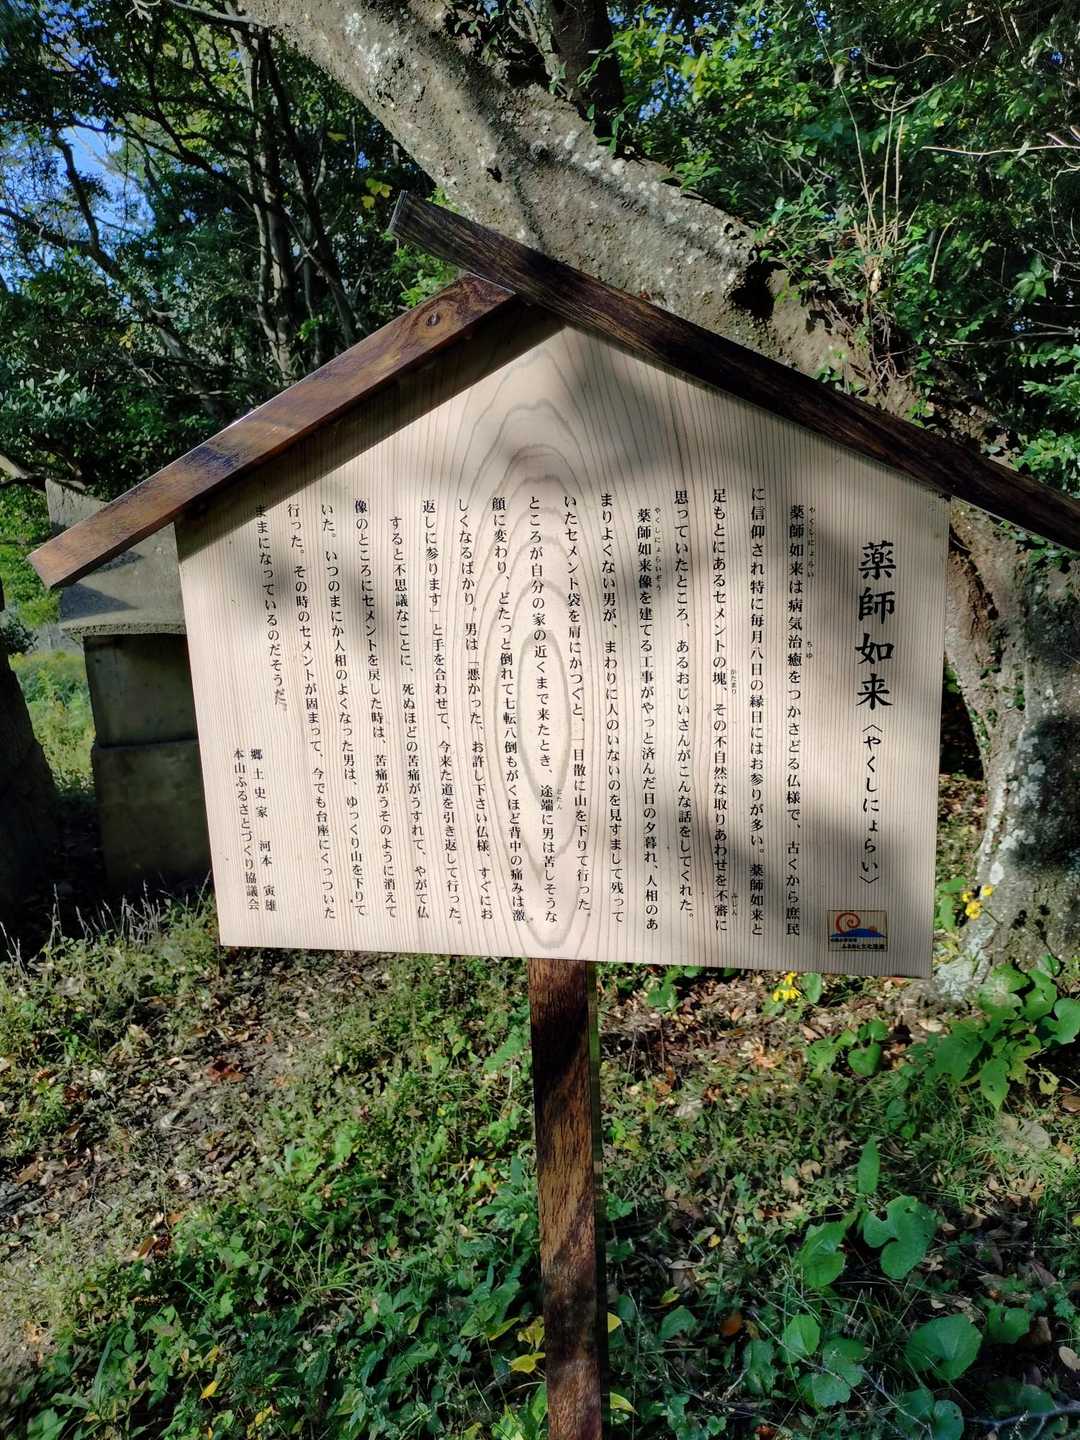 薬師如来〈やくしにょらい〉
薬師如来は病気治癒をつかさどる仏様で、古くから庶民
に信仰され特に毎月八日の縁日にはお参りが多い。薬師如来と
足もとにあるセメントの塊、その不自然な取りあわせを不審に
思っていたところ、あるおじいさんがこんな話をしてくれた。
薬師如来像を建てる工事がやっと済んだ日の夕暮れ、人相のあ
まりよくない男が、まわりに人のいないのを見すまして残って
いたセメント袋を肩にかつぐと、一目散に山を下りて行った。
ところが自分の家の近くまで来たとき、途端に男は苦しそうな
顔に変わり、どたっと倒れて七転八倒もがくほど背中の痛みは激
しくなるばかり。男は「悪かった、お許し下さい仏様、すぐにお
返しに参ります」と手を合わせて、今来た道を引き返して行った。
すると不思議なことに、死ぬほどの苦痛がうすれて、やがて仏
像のところにセメントを戻した時は、苦痛がうそのように消えて
いた。いつのまにか人相のよくなった男は、ゆっくり山を下りて
行った。その時のセメントが固まって、今でも台座にくっついた
ままになっているのだそうだ。
郷土史家　河本　寅雄
本山ふるさとづくり協議会